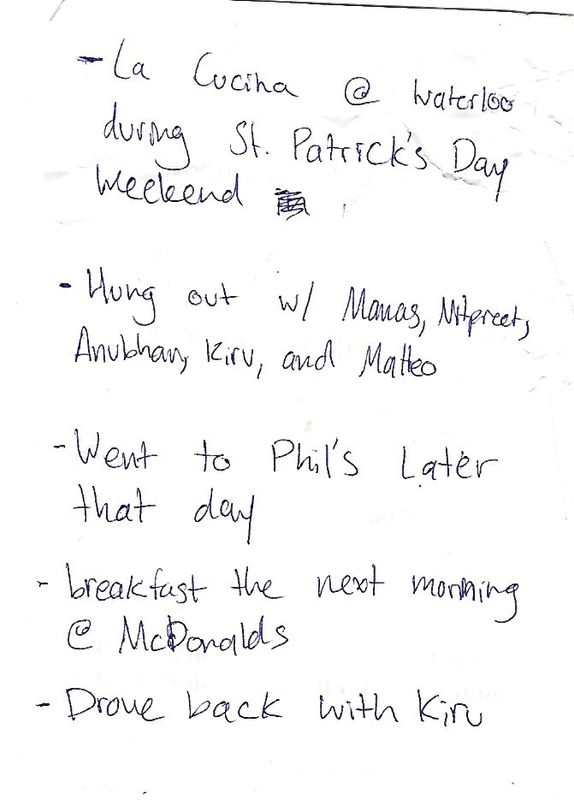 - La Cucina @ Waterloo
during St. Patrick's Day
Weekend
- Hung out w/ Manas, Mitpreet,
Anubhav, Kiru, and Matteo
- Went to Phil's Later
that day
- breakfast the next morning
@ McDonalds
- Drove back with Kiru